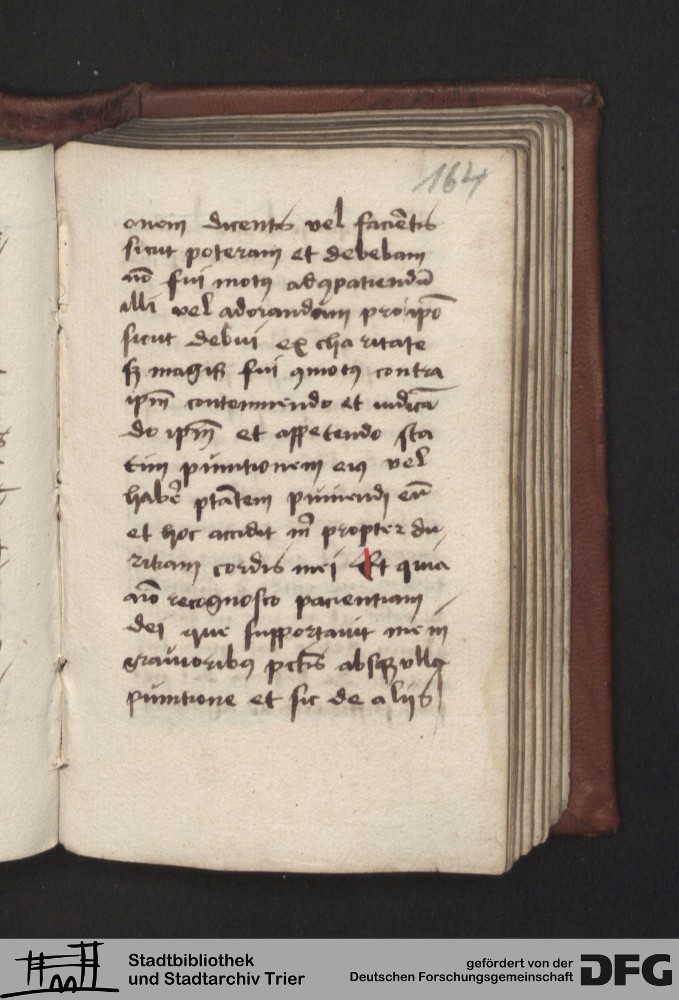 164
onem dicentis vel faciētis
sicut poteram et debebam
nō fui motꝰ ad ꝯpatiendū
illi vel adorandum pro ipō
sicut debui ex charitate
sꝫ magis fui ꝯmotꝰ contra
ipm̄ contemnendo et iudicā
do ipm̄ et appetendo sta
tim punitionem eiꝰ vel
habē ptātem puniendi eū
et hoc accidit m̄ propter du
ritiam cordis mei Et quia
nō recognosco pacientiam
dei que supportauit me in
grauioribꝰ pctīs absqꝫ vlla
punitione et sic de aliis
Stadtbibliothek
und Stadtarchiv Trier
gefördert von der
Deutschen Forschungsgemeinschaft
DFG